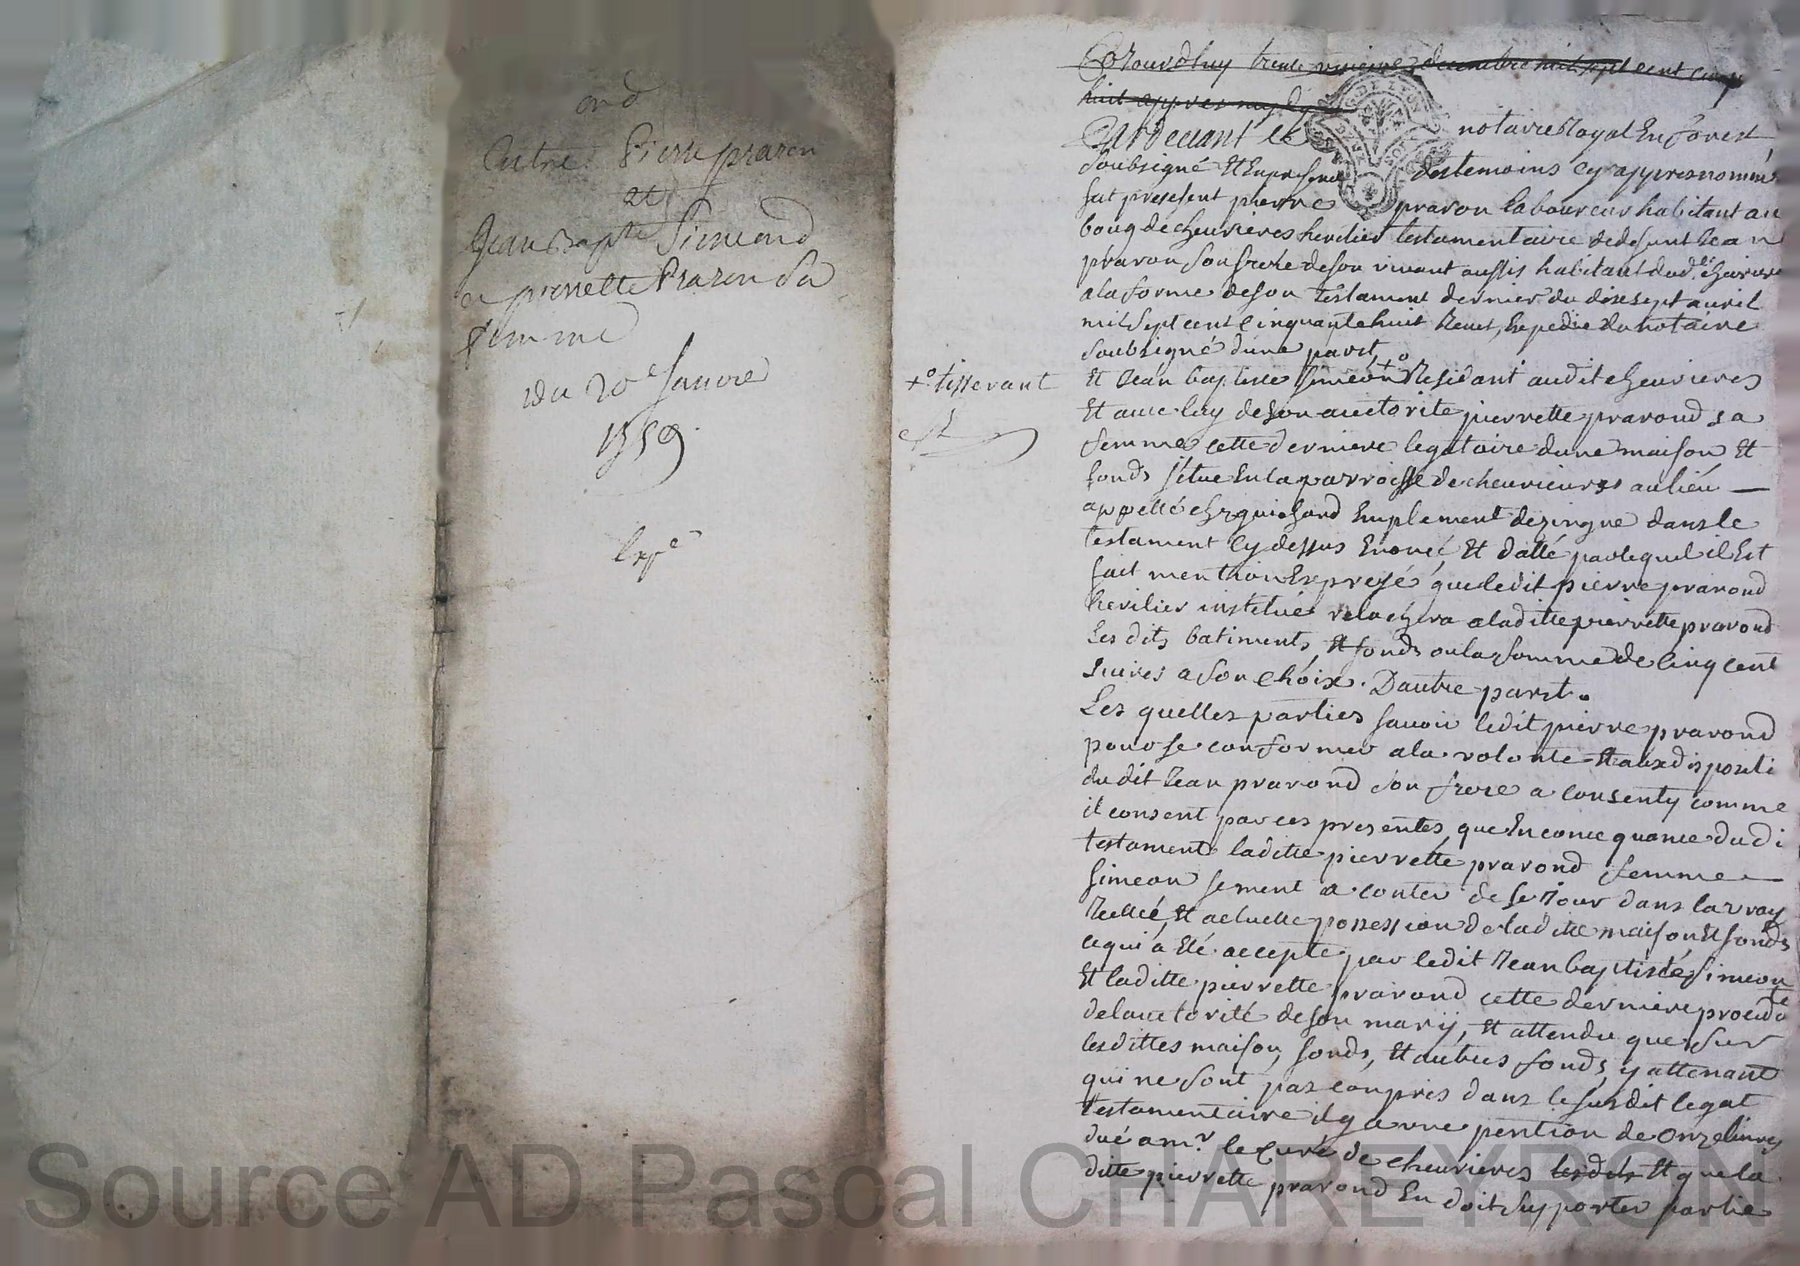 ond
Entre Pierre praron
et
Jean Bapte Simeond
et pierrette Praron Sa
femme
du 20e Janvier
1759
Expé
+° tisserant
Cejourdhuy trente uniesme decembre mil sept cent cinq
huit appres midy
Pardevant le notaire Royal En forest
Soubsigné Et En presence des temoins cy appres nommés
fut present pierre praron laboureur habitant au
bourg de cheurieres heritier testamentaire de defunt Jean
praron Son frere de son vivant aussis habitant dud. cheurieres
a la forme de son testament dernier du dixsept auril
mil Sept cent Cinquante huit Receu, Expedié du notaire
Soubsigné d'une part
Et Jean baptiste Simeon +° Residant audit cheurieres
Et auec luy de Son auctorité pierrette prarond sa
femme cette derniere legataire dune maison Et
fonds Situé En la parroisse de cheurieures au lieu
appellé chez guichard Emplement dezingne dans le
testament Cy dessus Enoncé Et datté par lequel il Est
fait menthion Expresé que ledit pierre prarond
heritier institué relachera a laditte pierrette prarond
Les dits batiments Et fonds ou la somme de Cinq cent
Liures a Son Choix. D'autre part.
Les quelles parties Sauoir ledit pierre prarond
pour se conformer a la volonté Et aux dispositi
du dit Jean prarond Son frere a Consenty comme
il consent par ces presentes, que En consequance dudi
testament laditte pierrette prarond femme
Simeon se ment a conter de se Jour dans la vray
Reelle, Et actuelle possession de laditte maison Et fonds
ce qui a Eté accepté par ledit Jean baptiste Simeon
Et laditte pierrette prarond cette derniere procedte
de l'auctorité de Son marij, Et attendu que Sur
lesdittes maison, fonds, Et autres fonds y attenant
qui ne Sont pas compris dans le susdit legat
testamentaire il y a vne pention de onze liures
dué a mr. le Curé de cheurieres lesdits Et que la
ditte pierrette prarond En doit Supporter partie
Source AD Pascal CHAREYRON